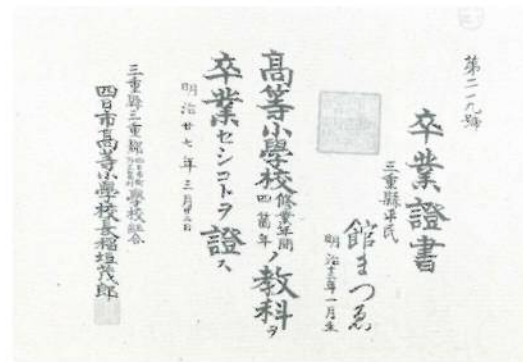 第二一九號
卒業證書
三重縣平民
館まつゑ
明治十三年一月生
高等小學校修業年間四箇年ノ教科ヲ
卒業セシコトヲ證ス
明治廿七年三月廿三日
三重縣三重郡 學校組合
四日市高等小學校長稲垣茂郎